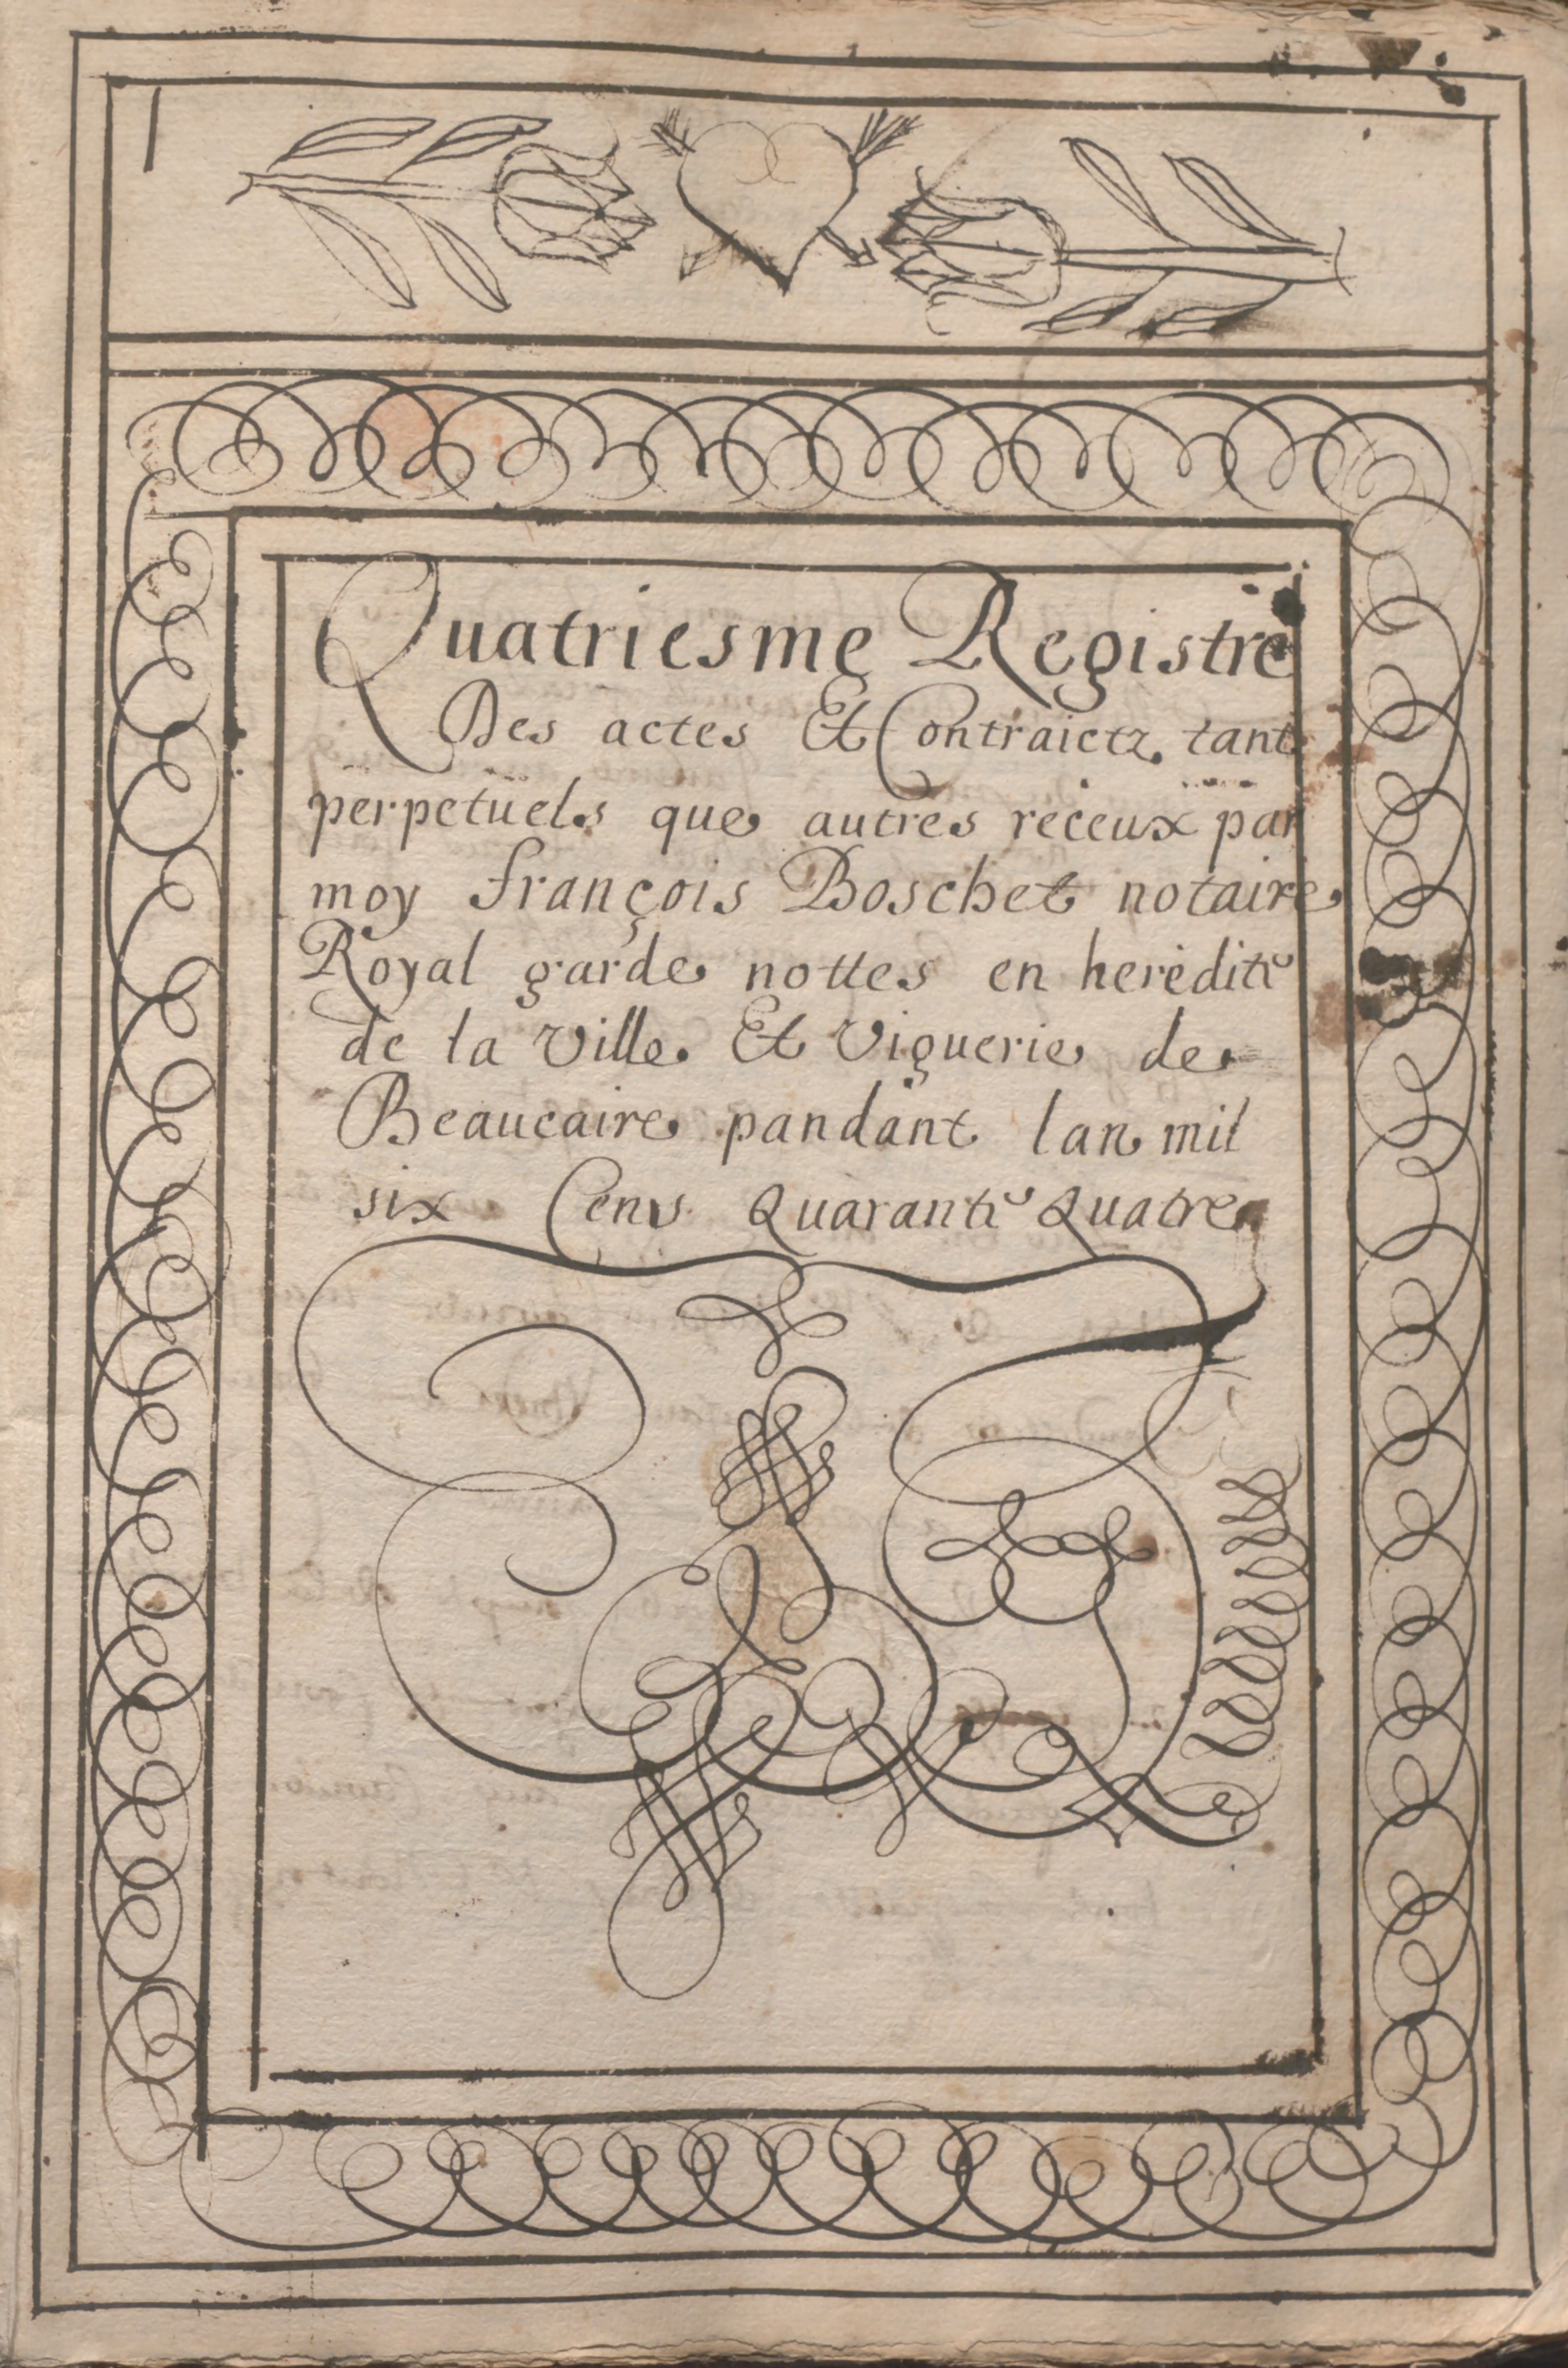 Quatriesme Registre
Des actes Et Contraictz tant
perpetuels que autres receux par
moy françois Boschet notaire
Royal garde nottes en heredité
de la Ville Et Viguerie de
Beaucaire pandant lan mil
six Cens Quarante Quatre